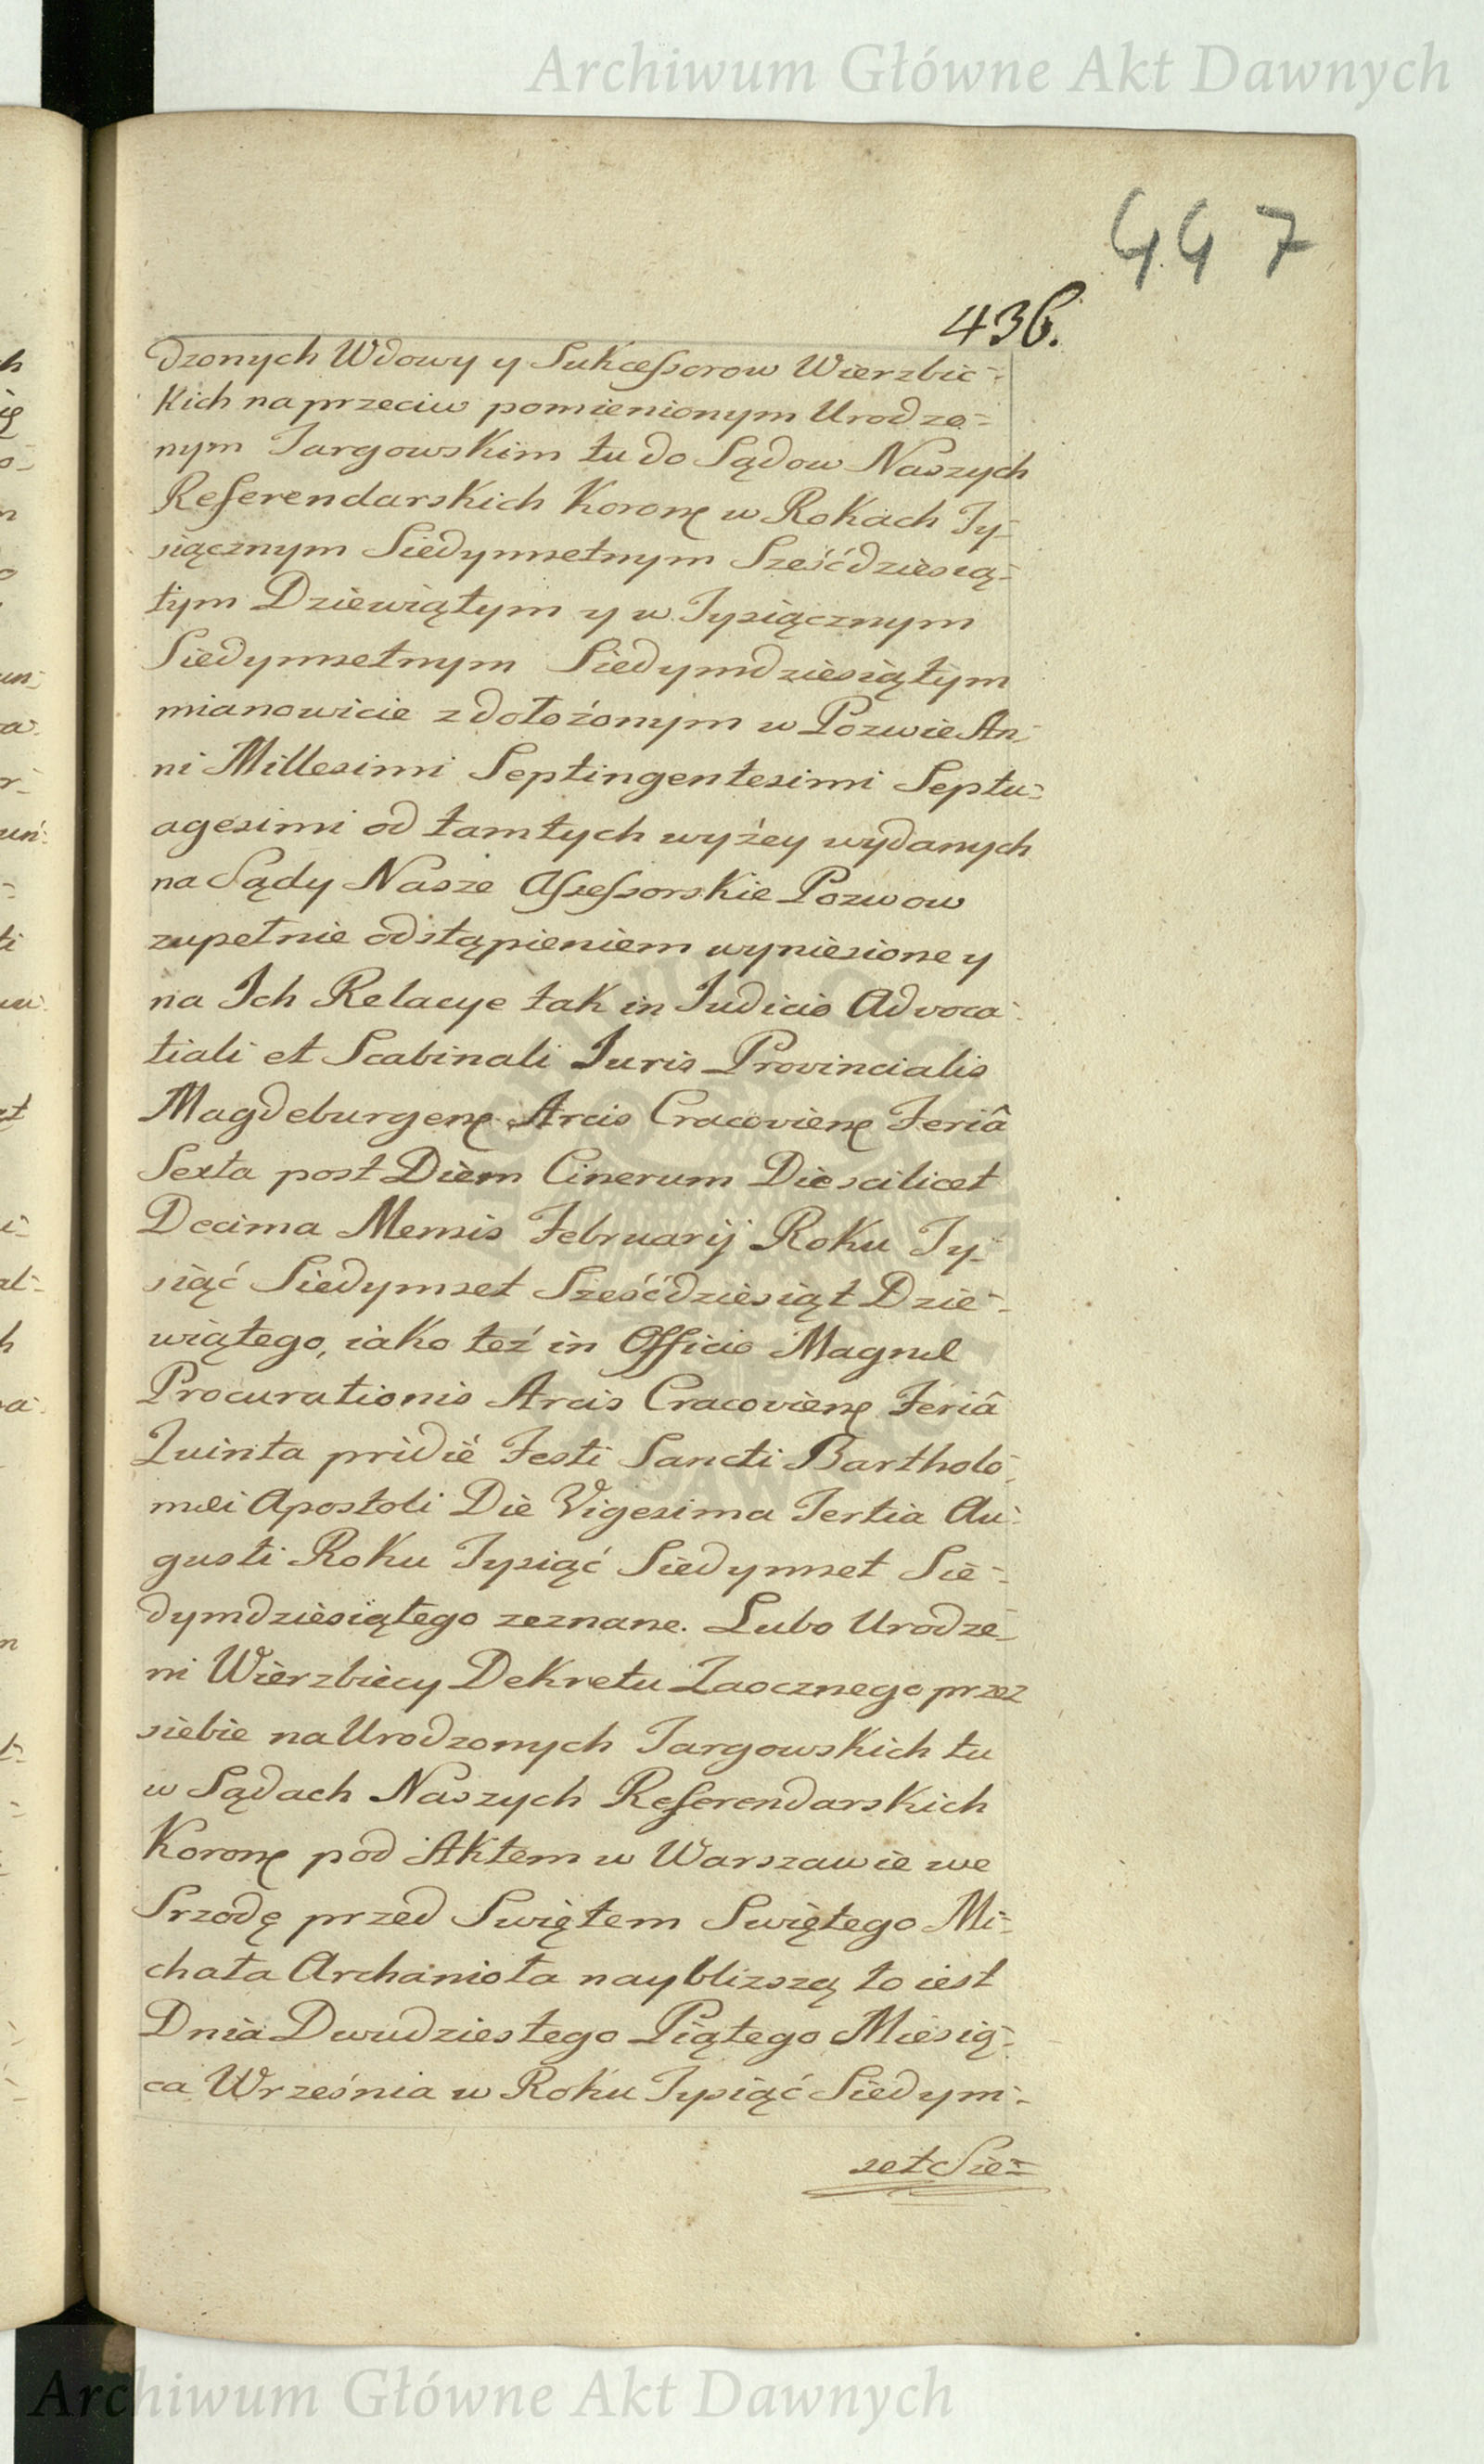 Archiwum Główne Akt Dawnych
447
436.
dzonych Wdowy y Sukcessorow Wierzbic-
kich na przeciw pomienionym Urodzo-
nym Targowskim tu do Sądow Naszych
Referendarskich Koronę w Rokach Ty-
siącznym Siedymsetnym Sześćdziesią-
tym Dziewiątym y w Tysiącznym
Siedymsetnym Siedymdziesiątym
mianowicie z dołożonym w Pozwie An-
ni Millesimi Septingentesimi Septu-
agesimi od tamtych wyżey wydanych
na Sądy Nasze Assessorskie Pozwow
zupełnie odstąpieniem wyniesione y
na Ich Relacye tak in Judicio Advoca-
tiali et Scabinali Juris Provincialis
Magdeburgenę Arcis Cracovienę Feriâ
Sexta post Diem Cinerum Die scilicet
Decima Mensis Februarij Roku Ty-
siąć Siedymset Sześćdziesiąt Dzie-
wiątego, iako też in Officio Magnæ
Procurationis Arcis Cracovienę Feriâ
Quinta pridie Festi Sancti Bartholo-
mæi Apostoli Die Vigesima Tertia Au-
gusti Roku Tysiąć Siedymset Sie-
dymdziesiątego zeznane. Lubo Urodze-
ni Wierzbiccy Dekretu Zaocznego przez
siebie na Urodzonych Targowskich tu
w Sądach Naszych Referendarskich
Koronę pod Aktem w Warszawie we
Srzodę przed Swiętem Swiętego Mi-
chała Archanioła nayblizszą to iest
Dnia Dwudziestego Piątego Miesią-
ca Września w Roku Tysiąć Siedym-
set Sie-
Archiwum Główne Akt Dawnych